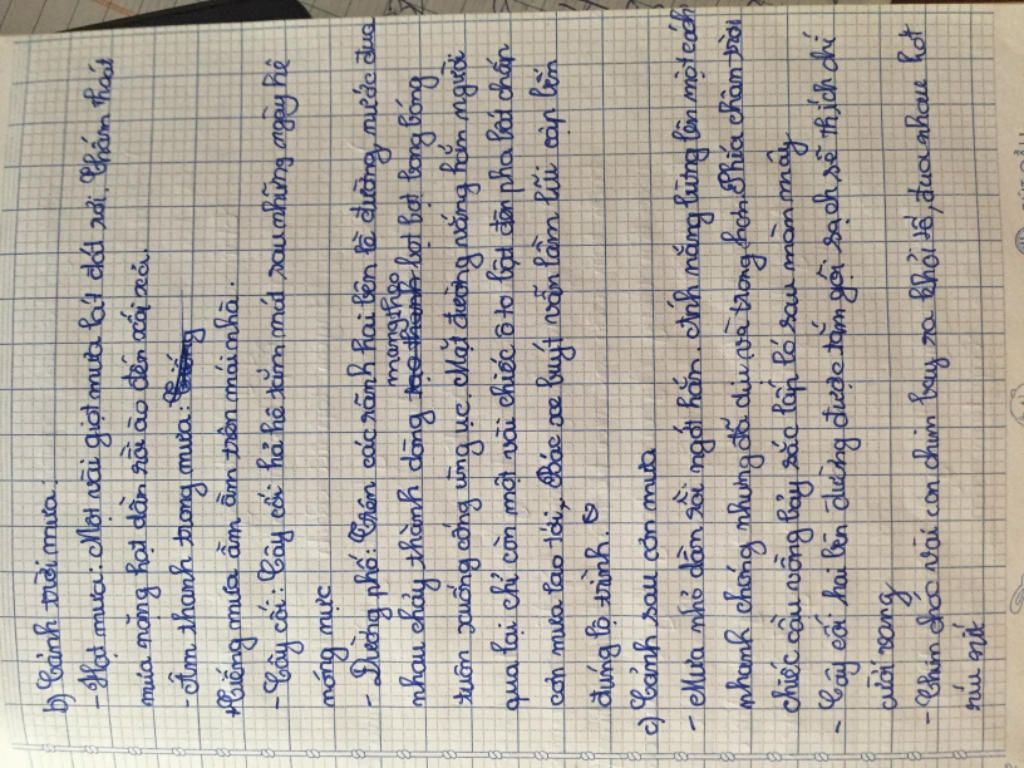 b) Cảnh trời mưa:
- Hạt mưa: Một vài giọt mưa lát đát rơi. Chốm thoát
mưa nặng hạt dần rồi ào đến xối xả.
- Âm thanh trong mưa:
+ Tiếng mưa ầm ầm trên mái nhà.
- Cây cối: Cây cối hả hê tắm mát sau những ngày hè
nóng nực
- Đường phố: Trên các rãnh hai bên lề đường, nước đua
nhau chảy thành dòng mang theo bọt bọt bong bóng
tuôn xuống cống ùng ục. Mặt đường vắng hẳn người
qua lại chỉ còn một vài chiếc ô tô bật đèn pha bất chấp
cơn mưa lao tới, Bác xe buýt vẫn lầm lũi cập bến
đúng lộ trình.
c) Cảnh sau cơn mưa
- Mưa nhỏ dần rồi ngớt hẳn. Ánh nắng bừng lên một cách
nhanh chóng nhưng đã dịu và trong hơn. Phía chân trời
chiếc cầu vồng bảy sắc lấp ló sau màn mây
- Cây cối hai bên đường được tắm gội sạch sẽ thích chí
cười vang
- Chim chóc vài con chim bay ra khỏi tổ, đua nhau hót
ríu rít